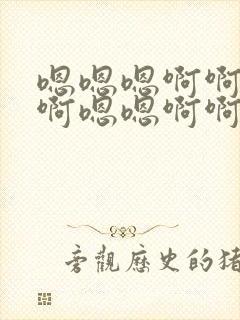 嗯嗯嗯啊啊
啊嗯嗯啊啊
旁觀歷史的猪